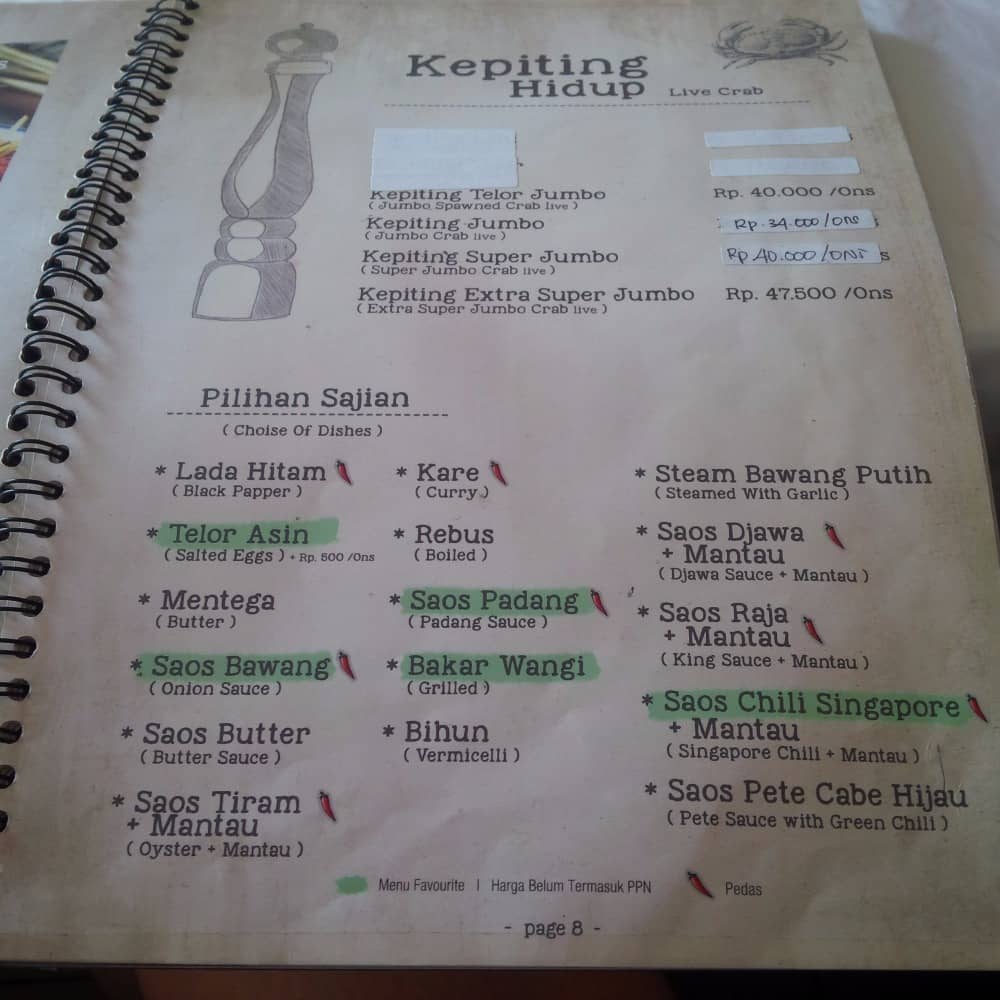 Kepiting
Hidup Live Crab
Kepiting Telor Jumbo Rp. 40.000 /Ons
( Jumbo Spawned Crab live )
Kepiting Jumbo Rp. 34.000/ons
( Jumbo Crab live )
Kepiting Super Jumbo Rp 40.000/ONS s
( Super Jumbo Crab live )
Kepiting Extra Super Jumbo Rp. 47.500 /Ons
( Extra Super Jumbo Crab live )
Pilihan Sajian
( Choise Of Dishes )
* Lada Hitam
( Black Papper )
* Telor Asin
( Salted Eggs ) + Rp. 500 /Ons
* Mentega
( Butter )
* Saos Bawang
( Onion Sauce )
* Saos Butter
( Butter Sauce )
* Saos Tiram
+ Mantau
( Oyster + Mantau )
* Kare
( Curry )
* Rebus
( Boiled )
* Saos Padang
( Padang Sauce )
* Bakar Wangi
( Grilled )
* Bihun
( Vermicelli )
* Steam Bawang Putih
( Steamed With Garlic )
* Saos Djawa
+ Mantau
( Djawa Sauce + Mantau )
* Saos Raja
+ Mantau
( King Sauce + Mantau )
* Saos Chili Singapore
+ Mantau
( Singapore Chili + Mantau )
* Saos Pete Cabe Hijau
( Pete Sauce with Green Chili )
Menu Favourite | Harga Belum Termasuk PPN Pedas
- page 8 -